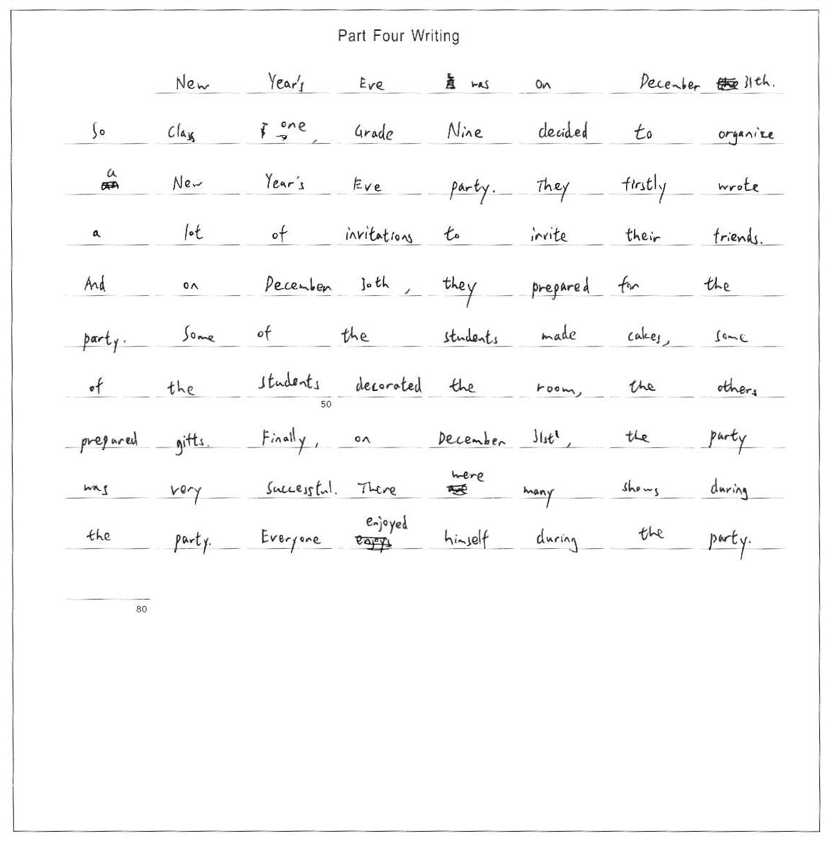 Part Four Writing
New Year's Eve was on December 31th.
So Class one, Grade Nine decided to organize
a New Year's Eve party. They firstly wrote
a lot of invitations to invite their friends.
And on December 30th, they prepared for the
party. Some of the students made cakes, some
of the students decorated the room, the others
50
prepared gifts. Finally, on December 31st, the party
was very successful. There were many shows during
the party. Everyone enjoyed himself during the party.
80